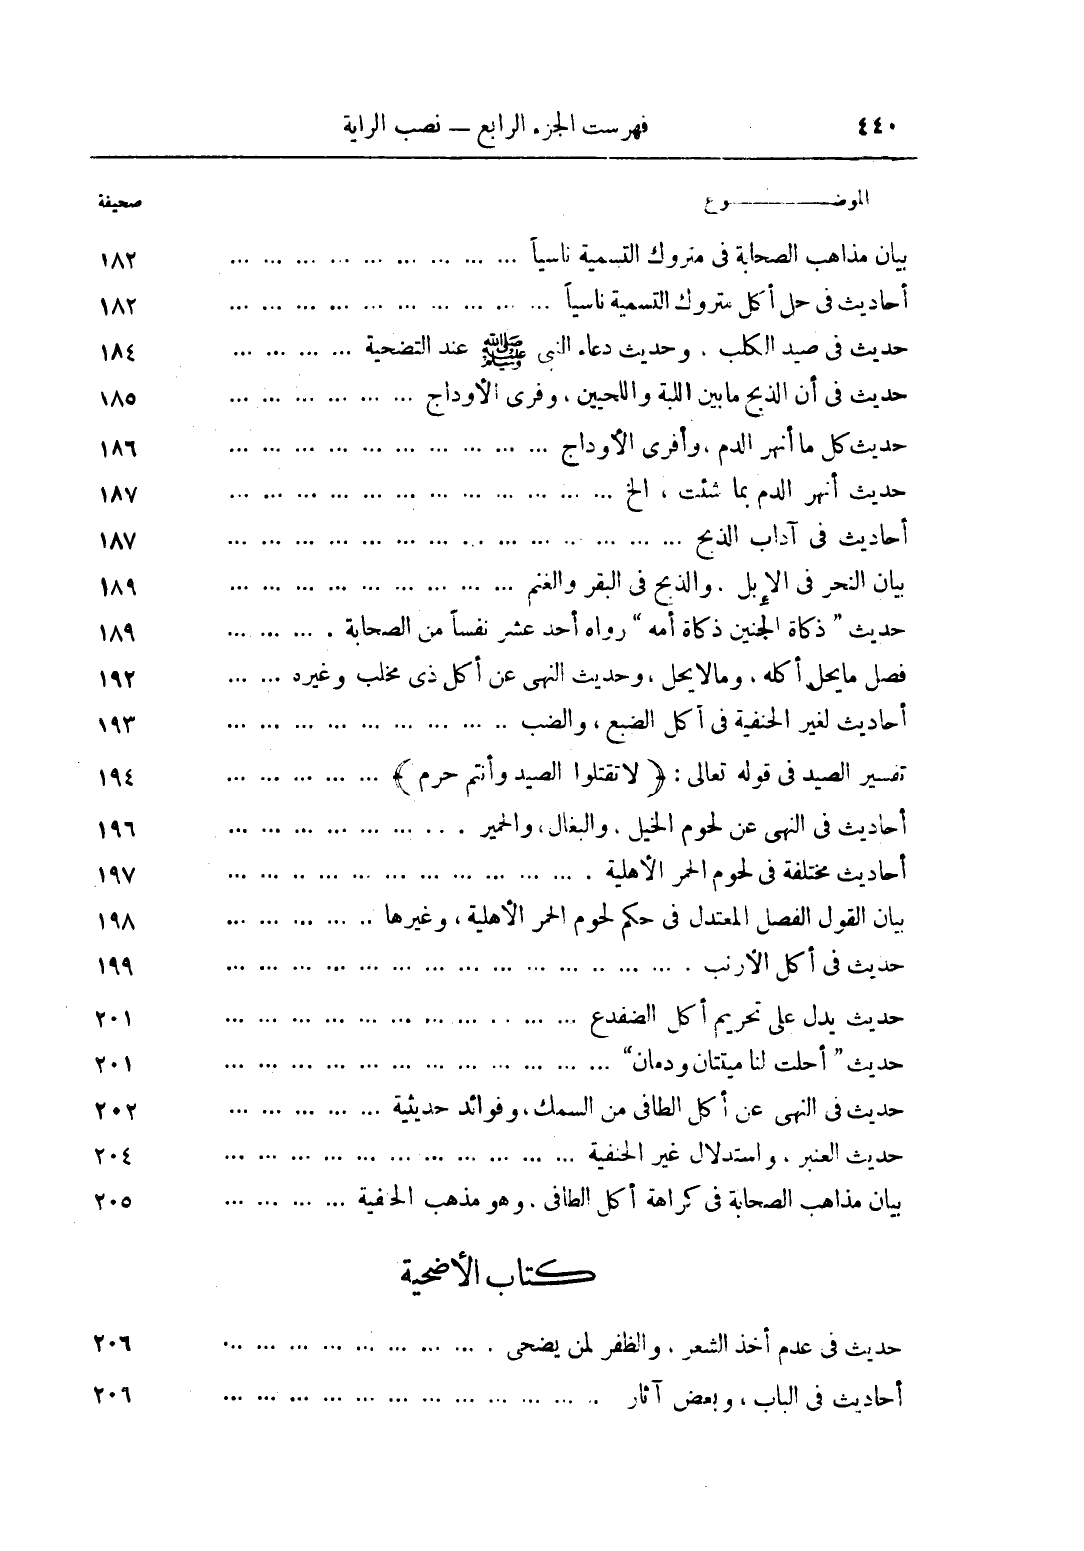 ٤٤٠ فهرست الجزء الرابع — نصب الراية
الموضـــــــوع صحيفة
بيان مذاهب الصحابة فى متروك التسمية ناسياً ... ... ... ... ... ... ... ... ... ١٨٢
أحاديث فى حل أكل متروك التسمية ناسياً ... ... ... ... ... ... ... ... ... ... ١٨٢
حديث فى صيد الكلب . وحديث دعاء النبى ﷺ عند التضحية ... ... ... ... ١٨٤
حديث فى أن الذبح مابين اللبة واللحيين ، وفرى الأوداج ... ... ... ... ... ... ١٨٥
حديث كل ما أنهر الدم ، وأفرى الأوداج ... ... ... ... ... ... ... ... ... ... ١٨٦
حديث أنهر الدم بما شئت ، الخ ... ... ... ... ... ... ... ... ... ... ... ... ١٨٧
أحاديث فى آداب الذبح ... ... ... .. ... ... ... .. ... ... ... ... ... ... ١٨٧
بيان النحر فى الإبل . والذبح فى البقر والغنم ... ... ... ... ... ... ... ... ... ١٨٩
حديث ” ذكاة الجنين ذكاة أمه “ رواه أحد عشر نفساً من الصحابة . ... ... ... ١٨٩
فصل مايحل أكله ، ومالايحل ، وحديث النهى عن أكل ذى مخلب وغيره ... ... ١٩٢
أحاديث لغير الحنفية فى أكل الضبع ، والضب .. ... ... ... ... ... ... ... ... ١٩٣
تفسير الصيد فى قوله تعالى : ﴿ لاتقتلوا الصيد وأنتم حرم ﴾ ... ... ... ... ... ١٩٤
أحاديث فى النهى عن لحوم الخيل . والبغال ، والحمير . . . ... ... ... ... ... ... ١٩٦
أحاديث مختلفة فى لحوم الحمر الأهلية . ... ... ... ... ... ... ... ... .. ... ... ١٩٧
بيان القول الفصل المعتدل فى حكم لحوم الحمر الأهلية ، وغيرها .. ... ... ... ... ١٩٨
حديث فى أكل الأرنب . ... ... .. ... ... ... ... ... ... ... ... ... ... ... ١٩٩
حديث يدل على تحريم أكل الضفدع ... ... . . ... ... ... ... ... ... ... ... ... ٢٠١
حديث ” أحلت لنا ميتتان ودمان “ ... ... ... ... ... ... ... ... ... ... ... ... ٢٠١
حديث فى النهى عن أكل الطافى من السمك ، وفوائد حديثية ... ... ... ... ... ٢٠٢
حديث العنبر . واستدلال غير الحنفية ... ... ... ... ... ... ... ... ... ... ... ٢٠٤
بيان مذاهب الصحابة فى كراهة أكل الطافى . وهو مذهب الحنفية ... ... ... ... ٢٠٥
كتاب الأضحية
حديث فى عدم أخذ الشعر . والظفر لمن يضحى . ... ... ... ... ... ... ... ... ٢٠٦
أحاديث فى الباب ، وبعض آثار .. ... ... ... ... ... ... ... ... ... ... ... ٢٠٦